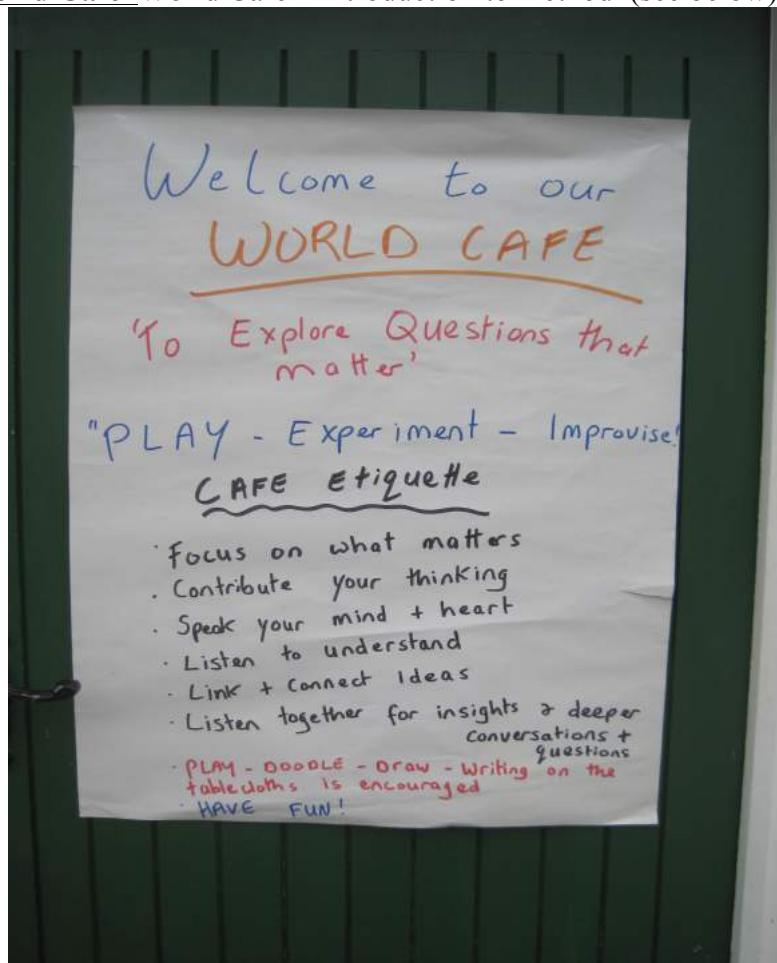 World Café
Welcome to our
WORLD CAFE
'To Explore Questions that
matter'
"PLAY - Experiment - Improvise!
CAFE Etiquette
· Focus on what matters
· Contribute your thinking
· Speak your mind + heart
· Listen to understand
· Link + Connect Ideas
· Listen together for insights & deeper
conversations +
questions
· PLAY - DOODLE - Draw - Writing on the
tablecloths is encouraged
· HAVE FUN!